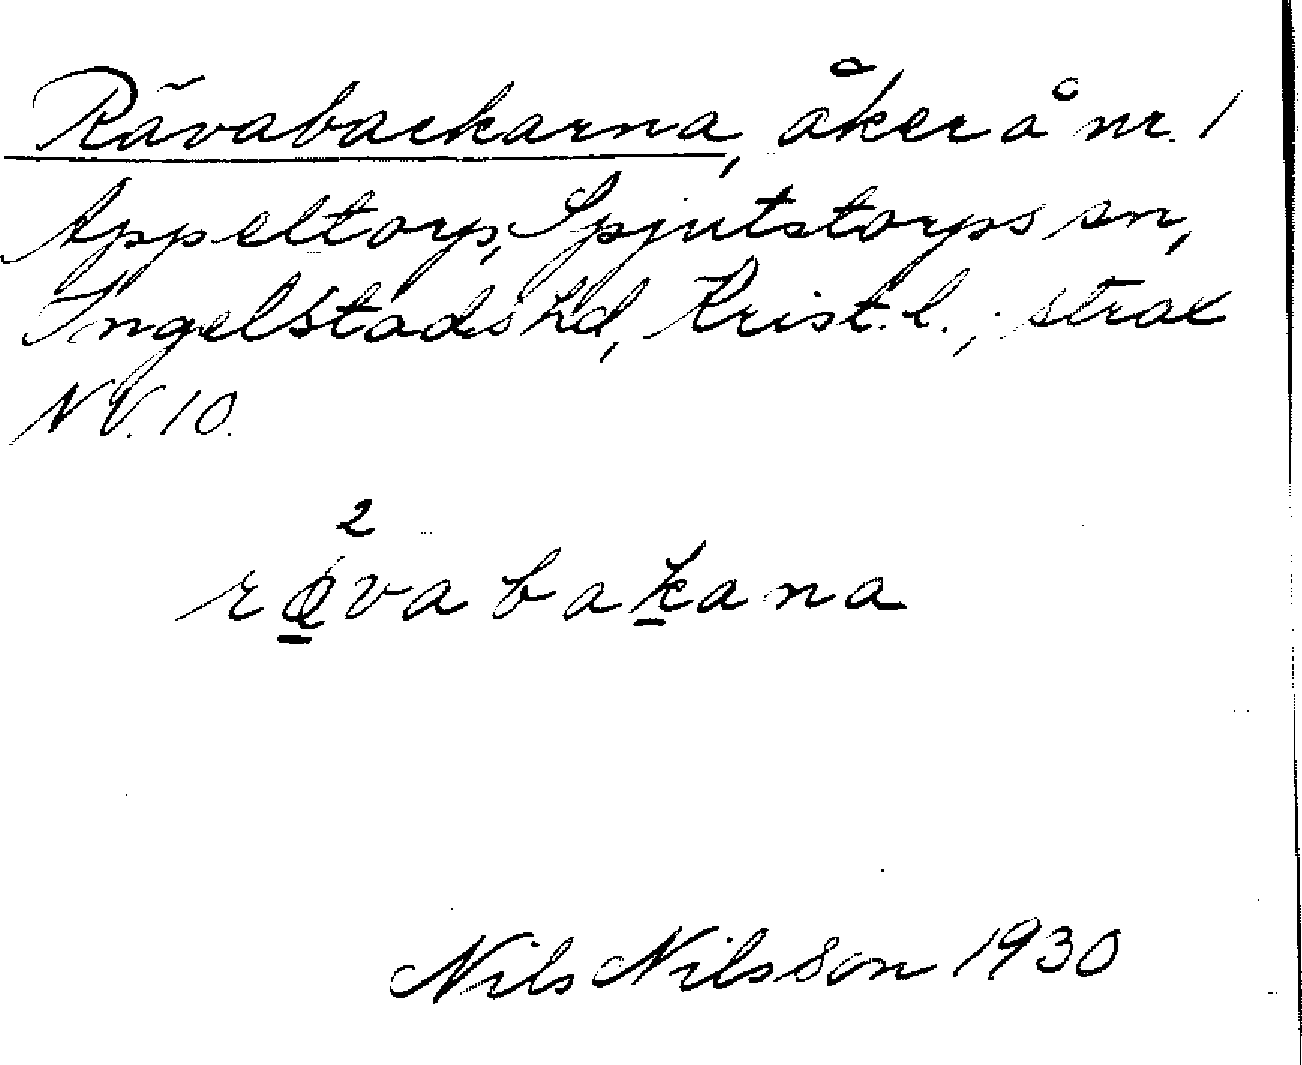 Rävabackarna, åker å nr. 1
Appeltorp, Spjutstorps sn,
Ingelstads hd, Krist. l.; strax
N V. 10.
2
rǿvabaḵana
Nils Nilsson 1930